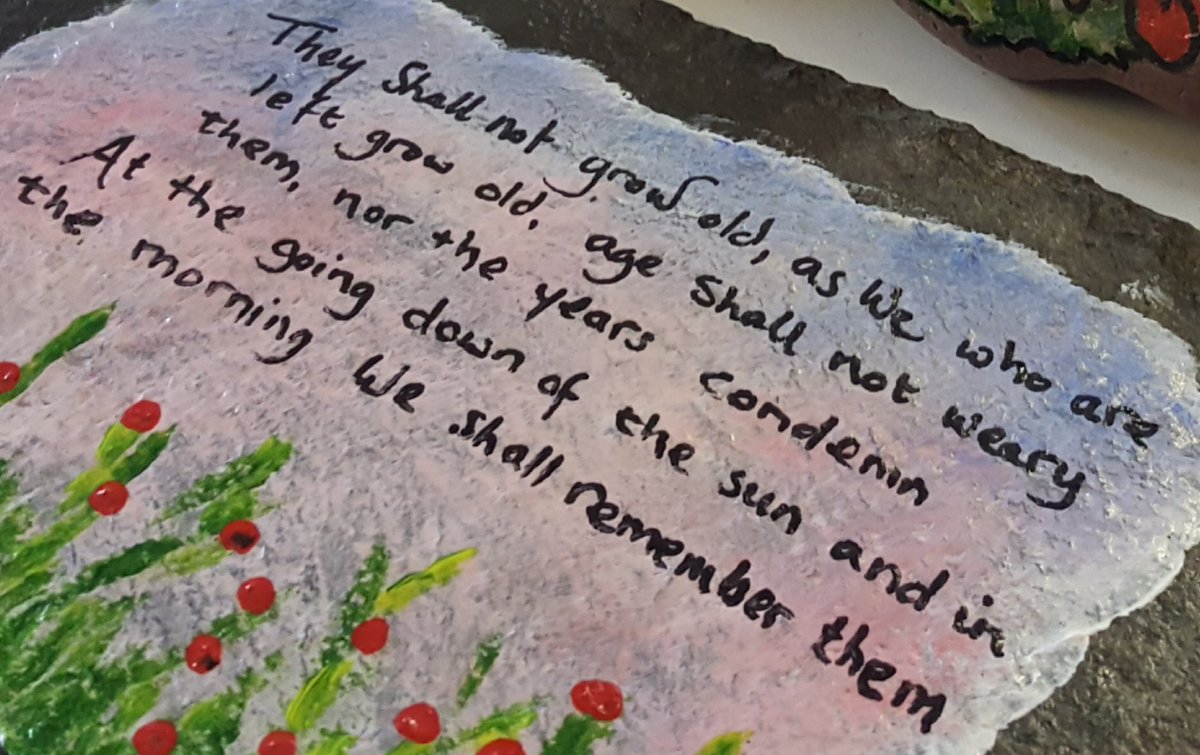 They Shall not grow old, as We who are
left grow old, age shall not weary
them, nor the years condemn
At the going down of the sun and in
the morning We shall remember them